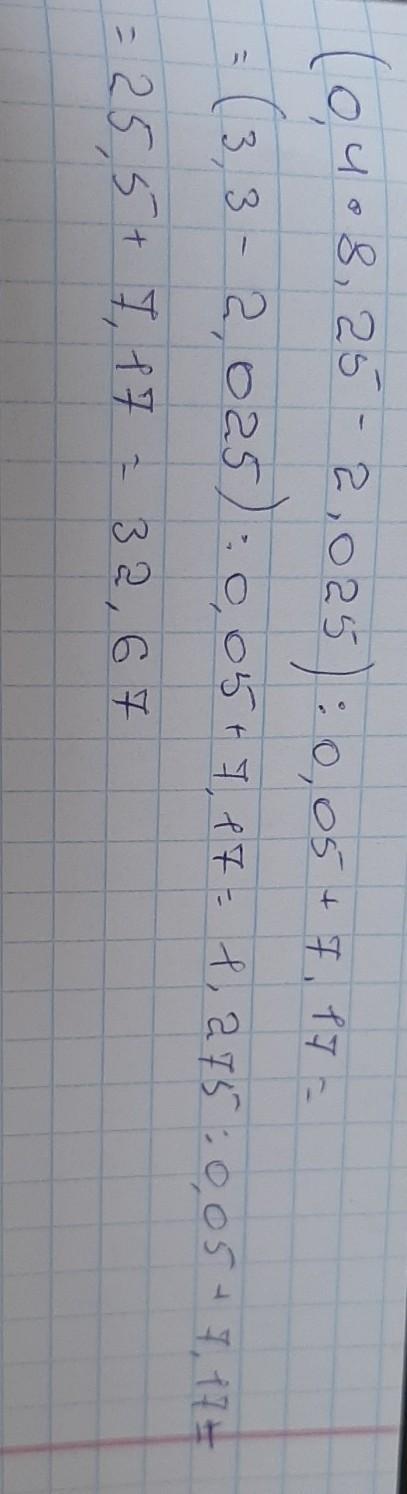 (0,4 • 8,25 - 2,025) : 0,05 + 7,17 =
= (3,3 - 2,025) : 0,05 + 7,17 = 1,275 : 0,05 + 7,17 =
= 25,5 + 7,17 = 32,67